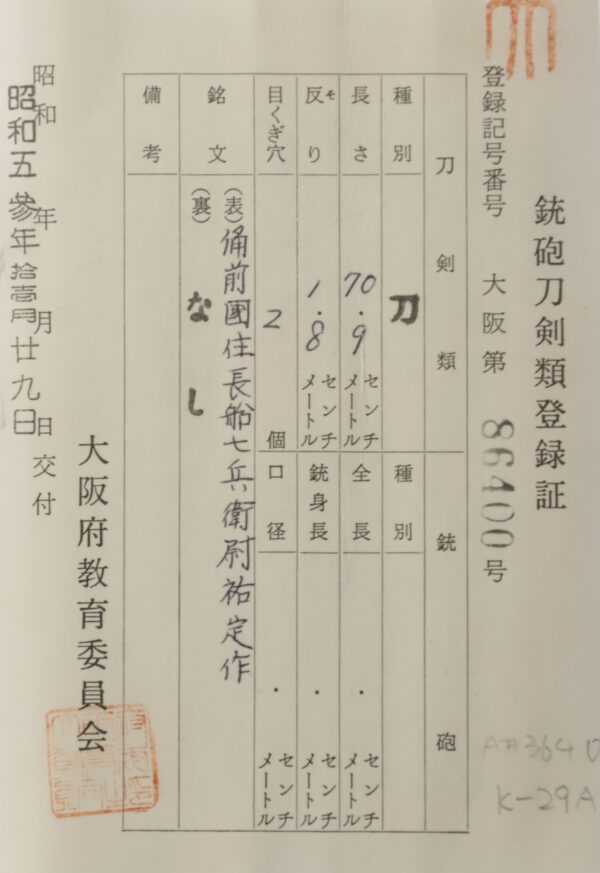 銃砲刀剣類登録証
登録記号番号 大阪第 86400 号
刀剣類 銃砲
種別 刀 種別
長さ 70.9 センチメートル 全長 ・ センチメートル
反り モ 1.8 センチメートル 銃身長 ・ センチメートル
目くぎ穴 2 個 口径 ・ センチメートル
銘文 (表) 備前國住長船七兵衛尉祐定作
(裏) なし
備考
昭和 年 月 日 交付
昭和五参年拾壱月廿九日
大阪府教育委員会
K-29A